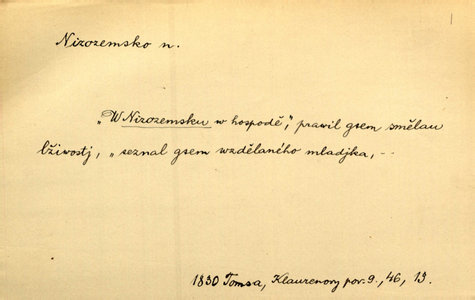 1
Nizozemsko n.
„W Nizozemsku w hospodě“, prawil gsem smělau
lžiwostj, „seznal gsem wzdělaného mladjka, –
1830 Tomsa, Klaurenowy pow. 9., 46, 13.